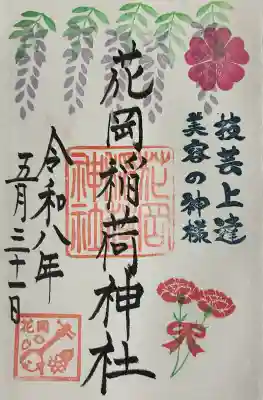 技芸上達
美容の神様
花岡稲荷神社
花岡稲荷神社
令和八年
五月三十一日
花岡